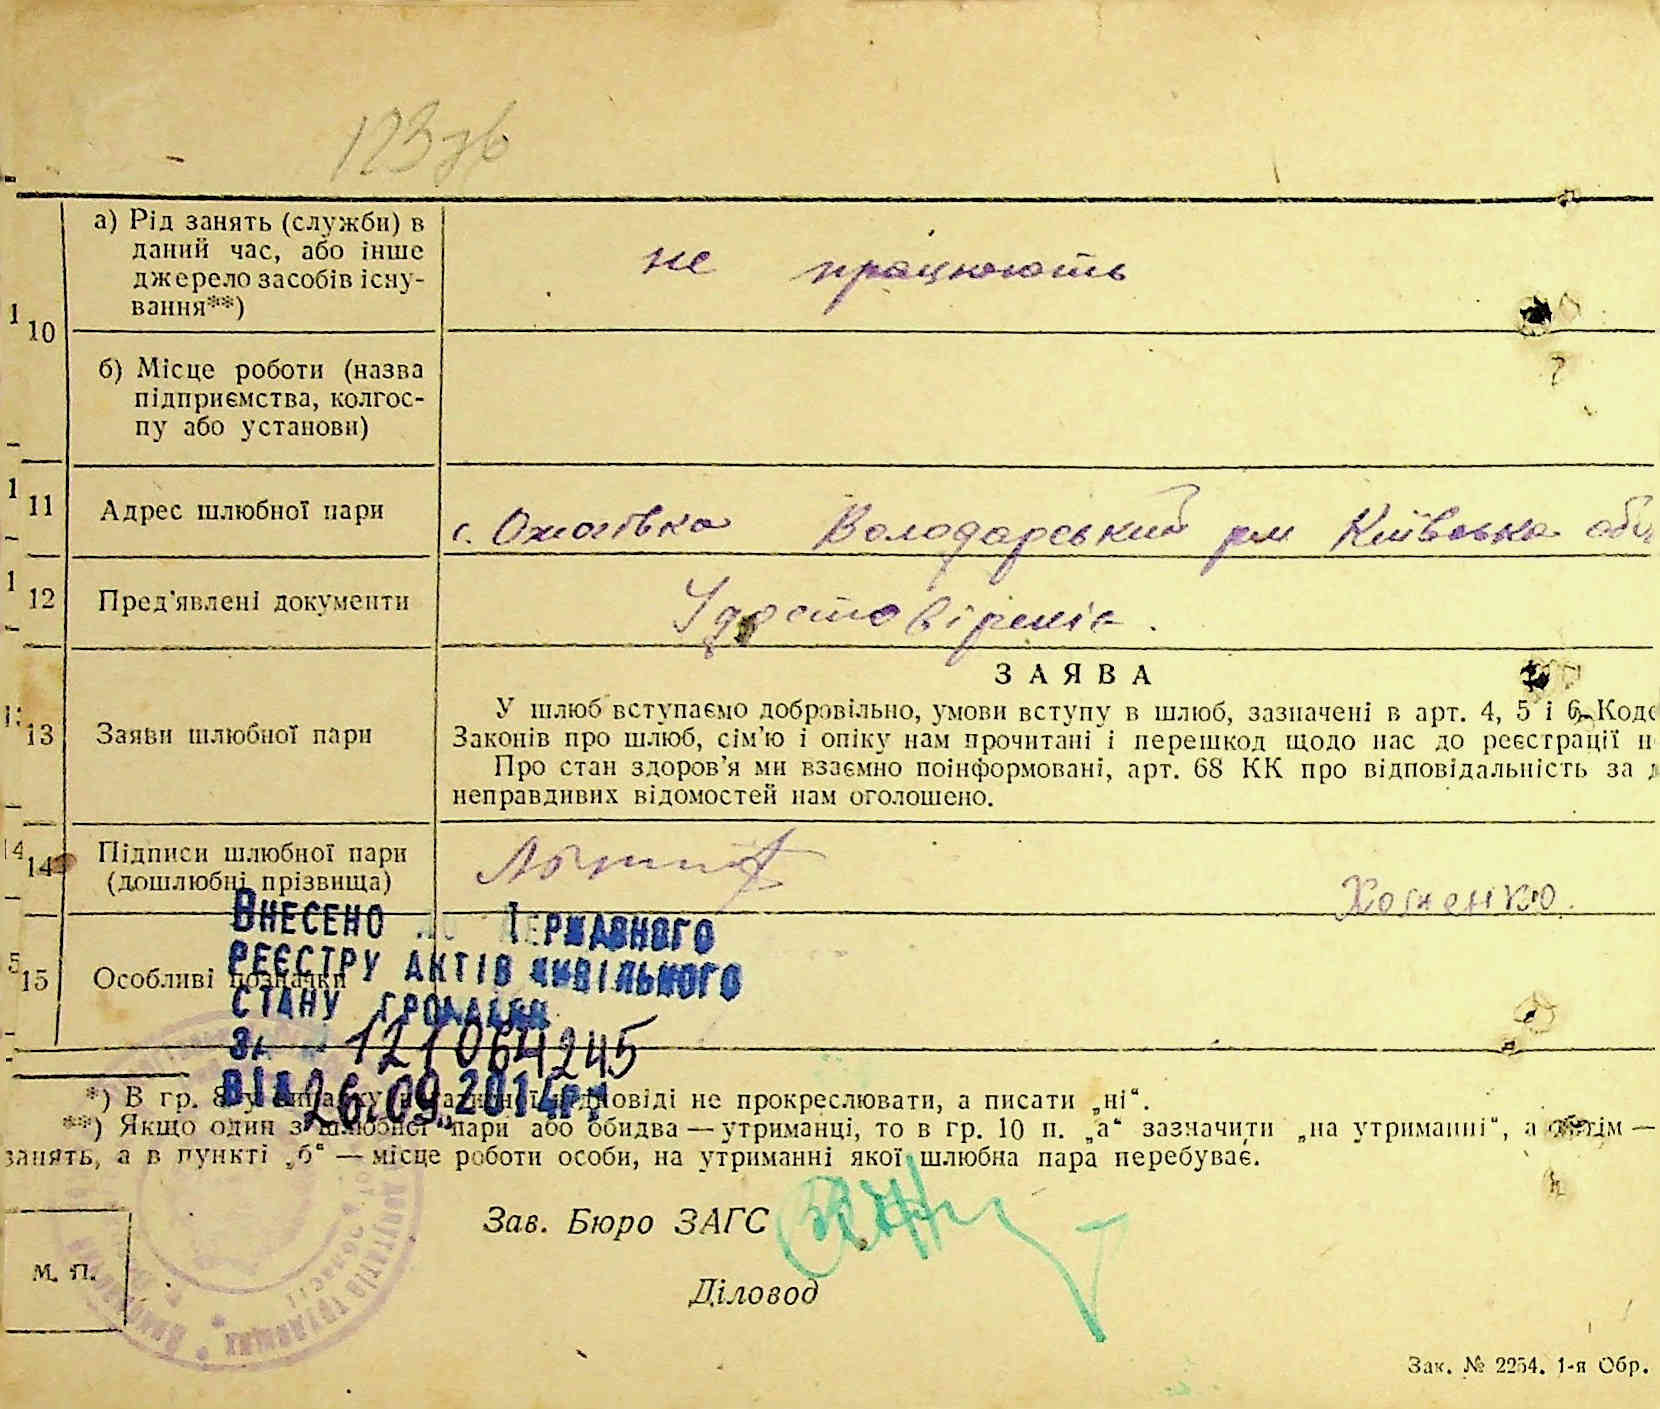 123зв
а) Рід занять (служби) в
даний час, або інше
джерело засобів існу-
вання**)
не працюють
1 10
б) Місце роботи (назва
підприємства, колгос-
пу або установи)
1 11
Адрес шлюбної пари
с. Володарський рн Київська обл
1 12
Пред'явлені документи
Удостовіреніє.
ЗАЯВА
13
Заяви шлюбної пари
У шлюб вступаємо добровільно, умови вступу в шлюб, зазначені в арт. 4, 5 і 6 Коде
Законів про шлюб, сім'ю і опіку нам прочитані і перешкод щодо нас до реєстрації н
Про стан здоров'я ми взаємно поінформовані, арт. 68 КК про відповідальність за д
неправдивих відомостей нам оголошено.
14 14
Підписи шлюбної пари
(дошлюбні прізвища)
5 15
Особливі позначки
ВНЕСЕНО ДО ДЕРЖАВНОГО
РЕЄСТРУ АКТІВ ЦИВІЛЬНОГО
СТАНУ ГРОМАДЯН
ЗА № 121064245
ВІД 26.09.2014р.
*) В гр. 8 у випадку відповіді не прокреслювати, а писати „ні“.
**) Якщо один з шлюбної пари або обидва — утриманці, то в гр. 10 п. „а“ зазначити „на утриманні“, а потім —
занять, а в пункті „б“ — місце роботи особи, на утриманні якої шлюбна пара перебуває.
Зав. Бюро ЗАГС
М. П.
Діловод
Зак. № 2254. 1-я Обр.